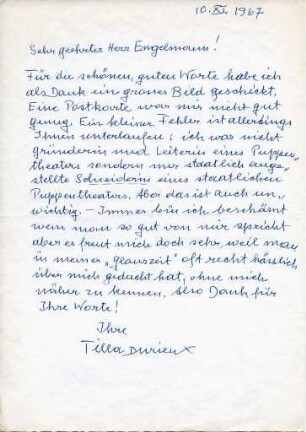 10. XI. 1967
Sehr geehrter Herr Engelmann!
Für die schönen, guten Worte habe ich
als Dank ein grosses Bild geschickt,
Eine Postkarte war mir nicht gut
genug. Ein kleiner Fehler ist allerdings
Ihnen unterlaufen: ich war nicht
gründerin und Leiterin eines Puppen„
theaters sondern nur staatlich ange„
stellte Schneiderin eines staatlichen
Puppentheaters. Aber das ist auch un„
wichtig. – Immer bin ich beschämt
wenn man so gut von mir spricht
aber es freut mich doch sehr, weil man
in meiner „glanzzeit" oft recht hässlich
über mich gedacht hat, ohne mich
näher zu kennen. Also Dank für
Ihre Worte!
Ihre
Tilla Durieux